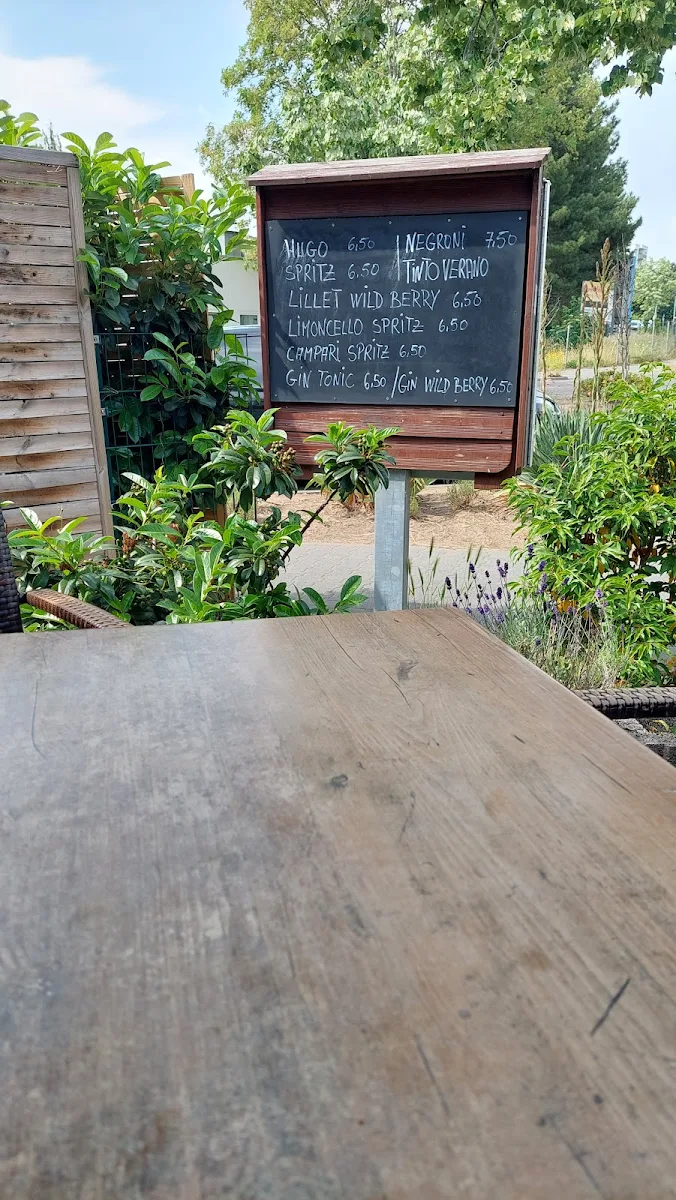 HUGO 6,50 / NEGRONI 7,50
SPRITZ 6.50 / TINTO VERANO
LILLET WILD BERRY 6,50
LIMONCELLO SPRITZ 6,50
CAMPARI SPRITZ 6,50
GIN TONIC 6,50 / GIN WILD BERRY 6,50